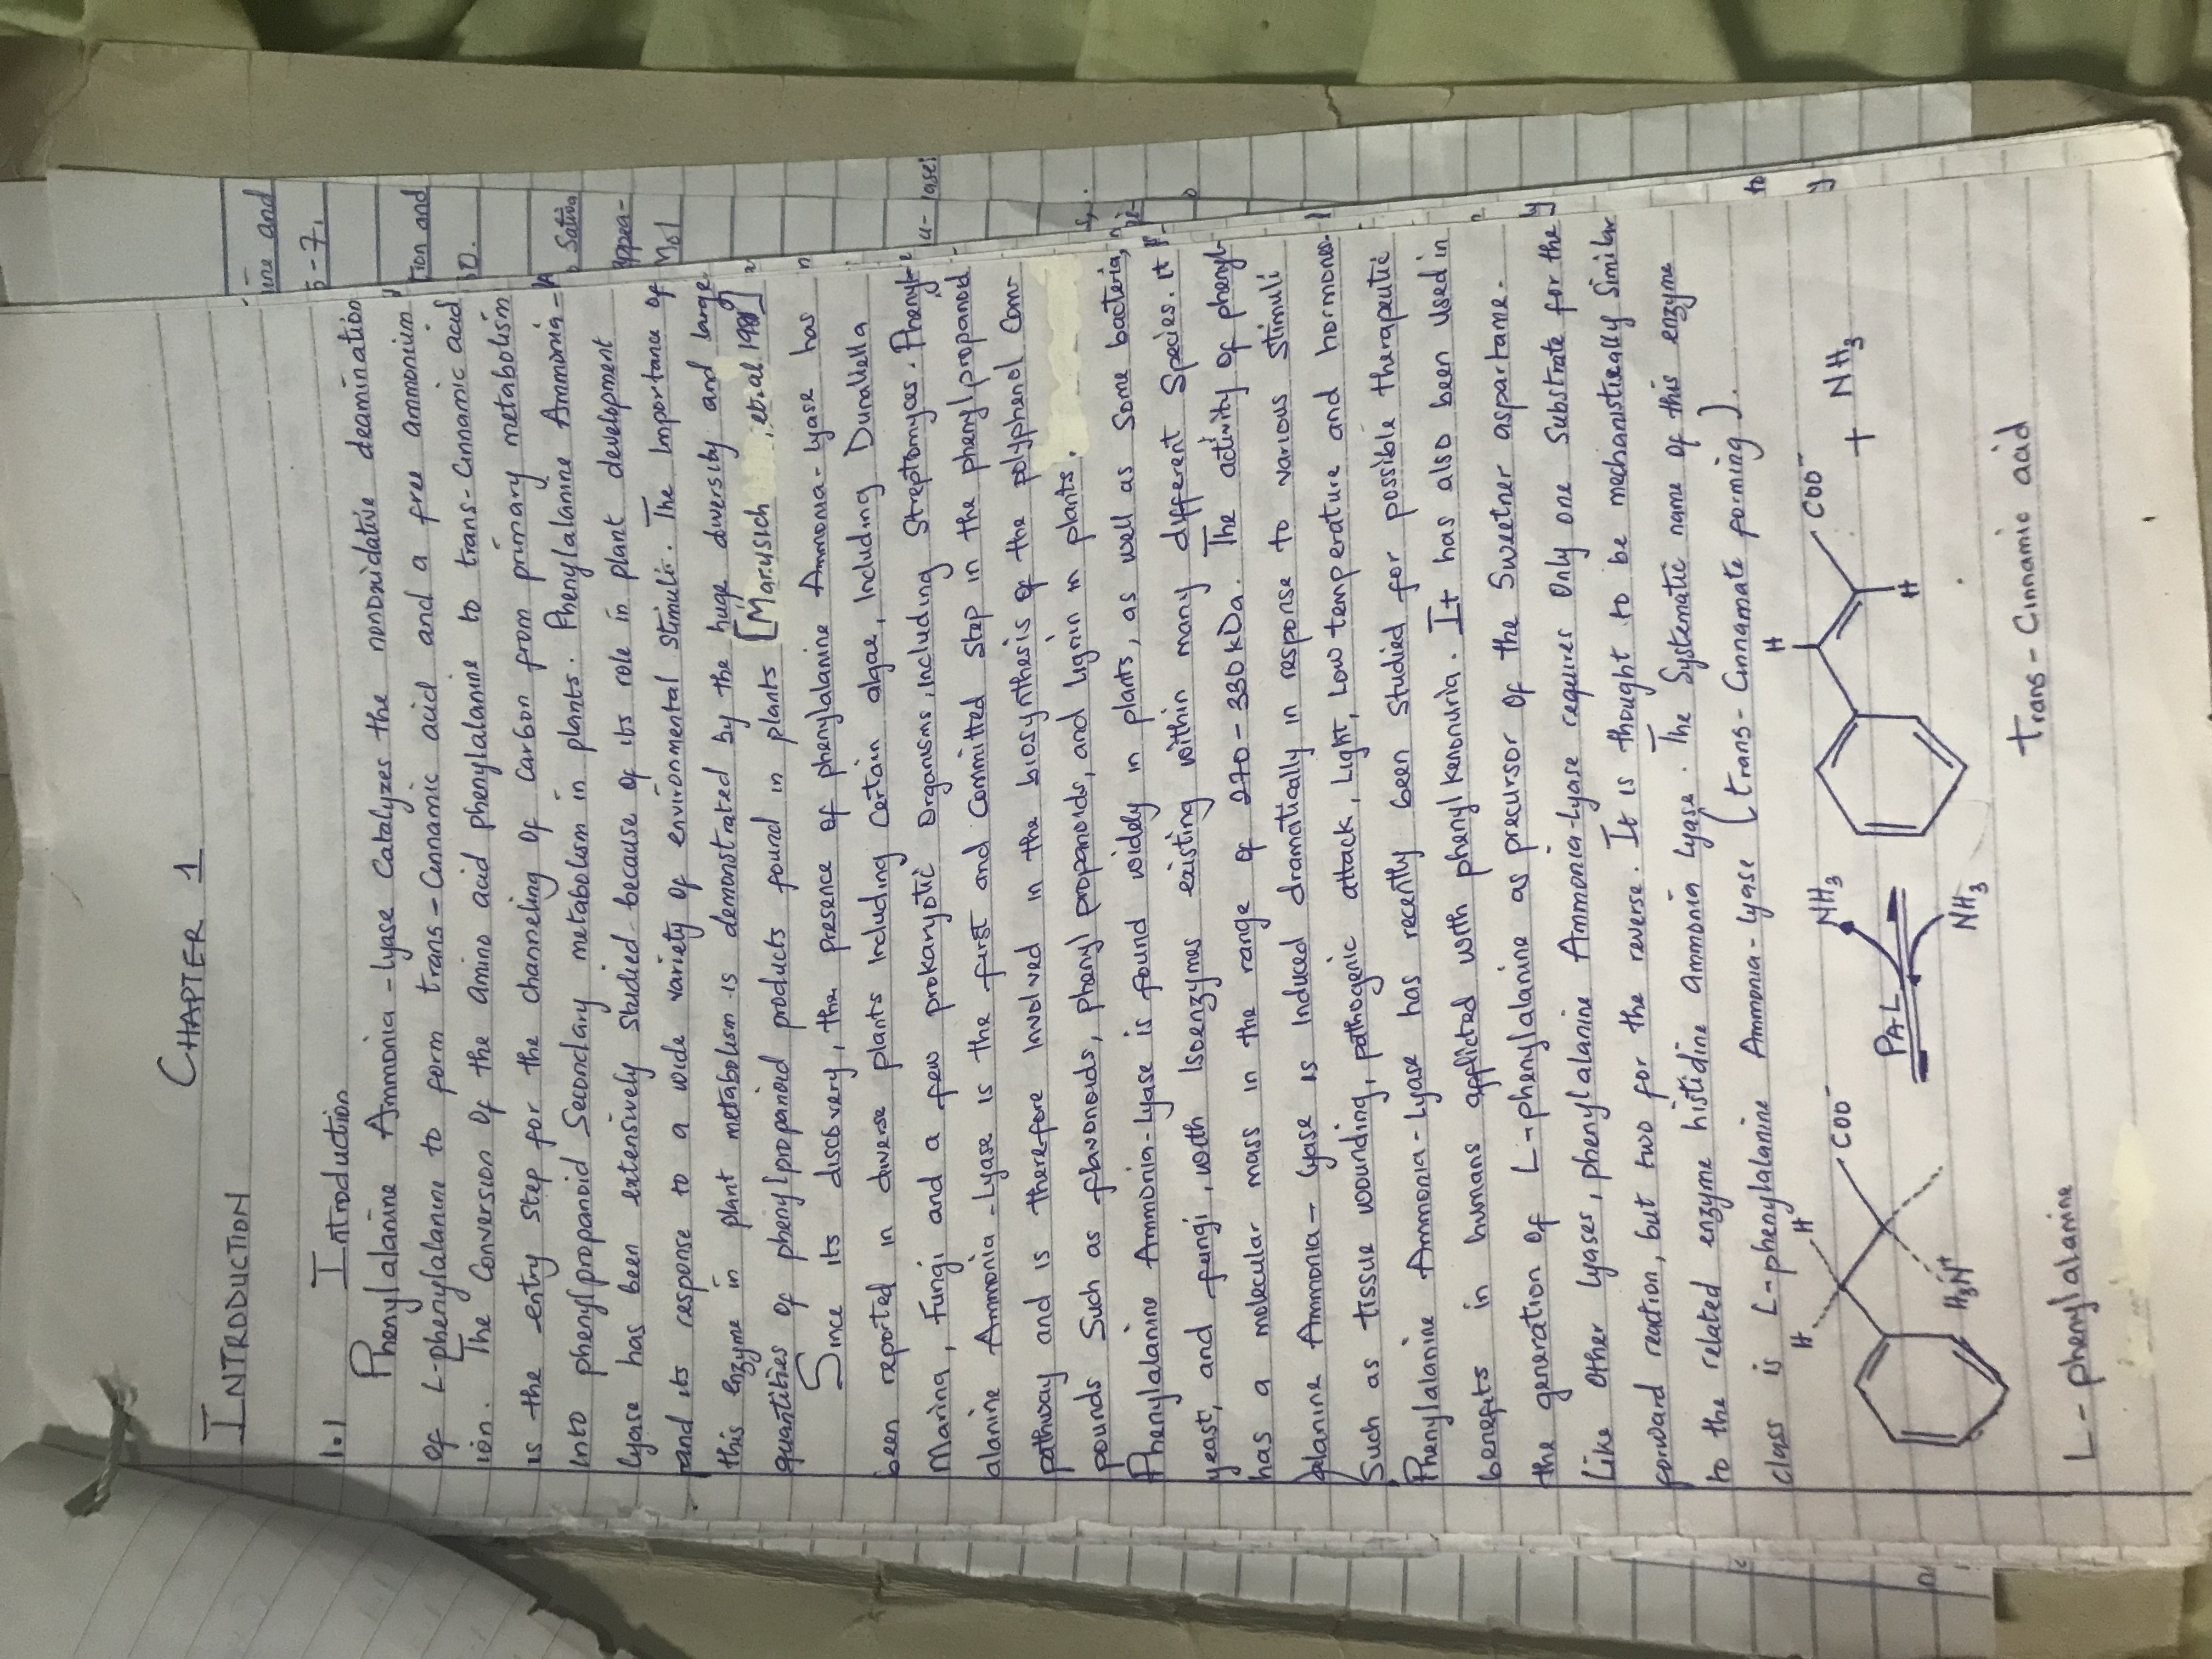 CHAPTER 1
INTRODUCTION
1.1 Introduction
Phenylalanine Ammonia-lyase Catalyzes the nonoxidative deamination
of L-phenylalanine to form trans-Cinnamic acid and a free ammonium
ion. The Conversion Of the amino acid phenylalanine to trans-Cinnamic acid
is the entry step for the channeling Of carbon from primary metabolism
into phenylpropanoid Secondary metabolism in plants. Phenylalanine Ammonia-
lyase has been extensively studied because of its role in plant development
and its response to a wide variety of environmental stimuli. The Importance of
this enzyme in plant metabolism is demonstrated by the huge diversity and large
quantities of phenylpropanoid products found in plants [Marusich , et.al
Since its discovery, the presence of phenylalanine Ammonia-lyase has
been reported in diverse plants Including Certain algae, Including Dunaliella
Marina, Fungi and a few prokaryotic Organisms, including Streptomyces. Phenyl-
alanine Ammonia-Lyase is the first and Committed Step in the phenylpropanoid
pathway and is therefore Involved in the biosynthesis of the polyphenol Com-
pounds Such as flavonoids, phenyl propanoids, and lignin in plants.
Phenylalanine Ammonia-Lyase is found widely in plants, as well as Some bacteria,
yeast, and fungi, with Isoenzymes existing within many different Species. It
has a molecular mass in the range of 270-330 kDa. The activity of phenyl-
alanine Ammonia-lyase is Induced dramatically in response to various stimuli
Such as tissue wounding, pathogenic attack, Light, Low temperature and hormones.
Phenylalanine Ammonia-Lyase has recently been Studied for possible therapeutic
benefits in humans afflicted with phenyl kenonuria. It has also been Used in
the generation of L-phenylalanine as precursor of the Sweetner aspartame.
Like Other lyases, phenylalanine Ammonia-Lyase requires Only one Substrate for the
forward reaction, but two for the reverse. It is thought to be mechanistically Similar
to the related enzyme histidine ammonia Lyase. The Systematic name of this enzyme
class is L-phenylalanine Ammonia-lyase (trans-Cinnamate forming).
H H COO⁻ H₃N⁺
PAL NH₃ NH₃
H COO⁻ H + NH₃
trans-Cinnamic acid
L-phenylalanine
and
5-7,
tion and
Sativa
appea-
Mol
to